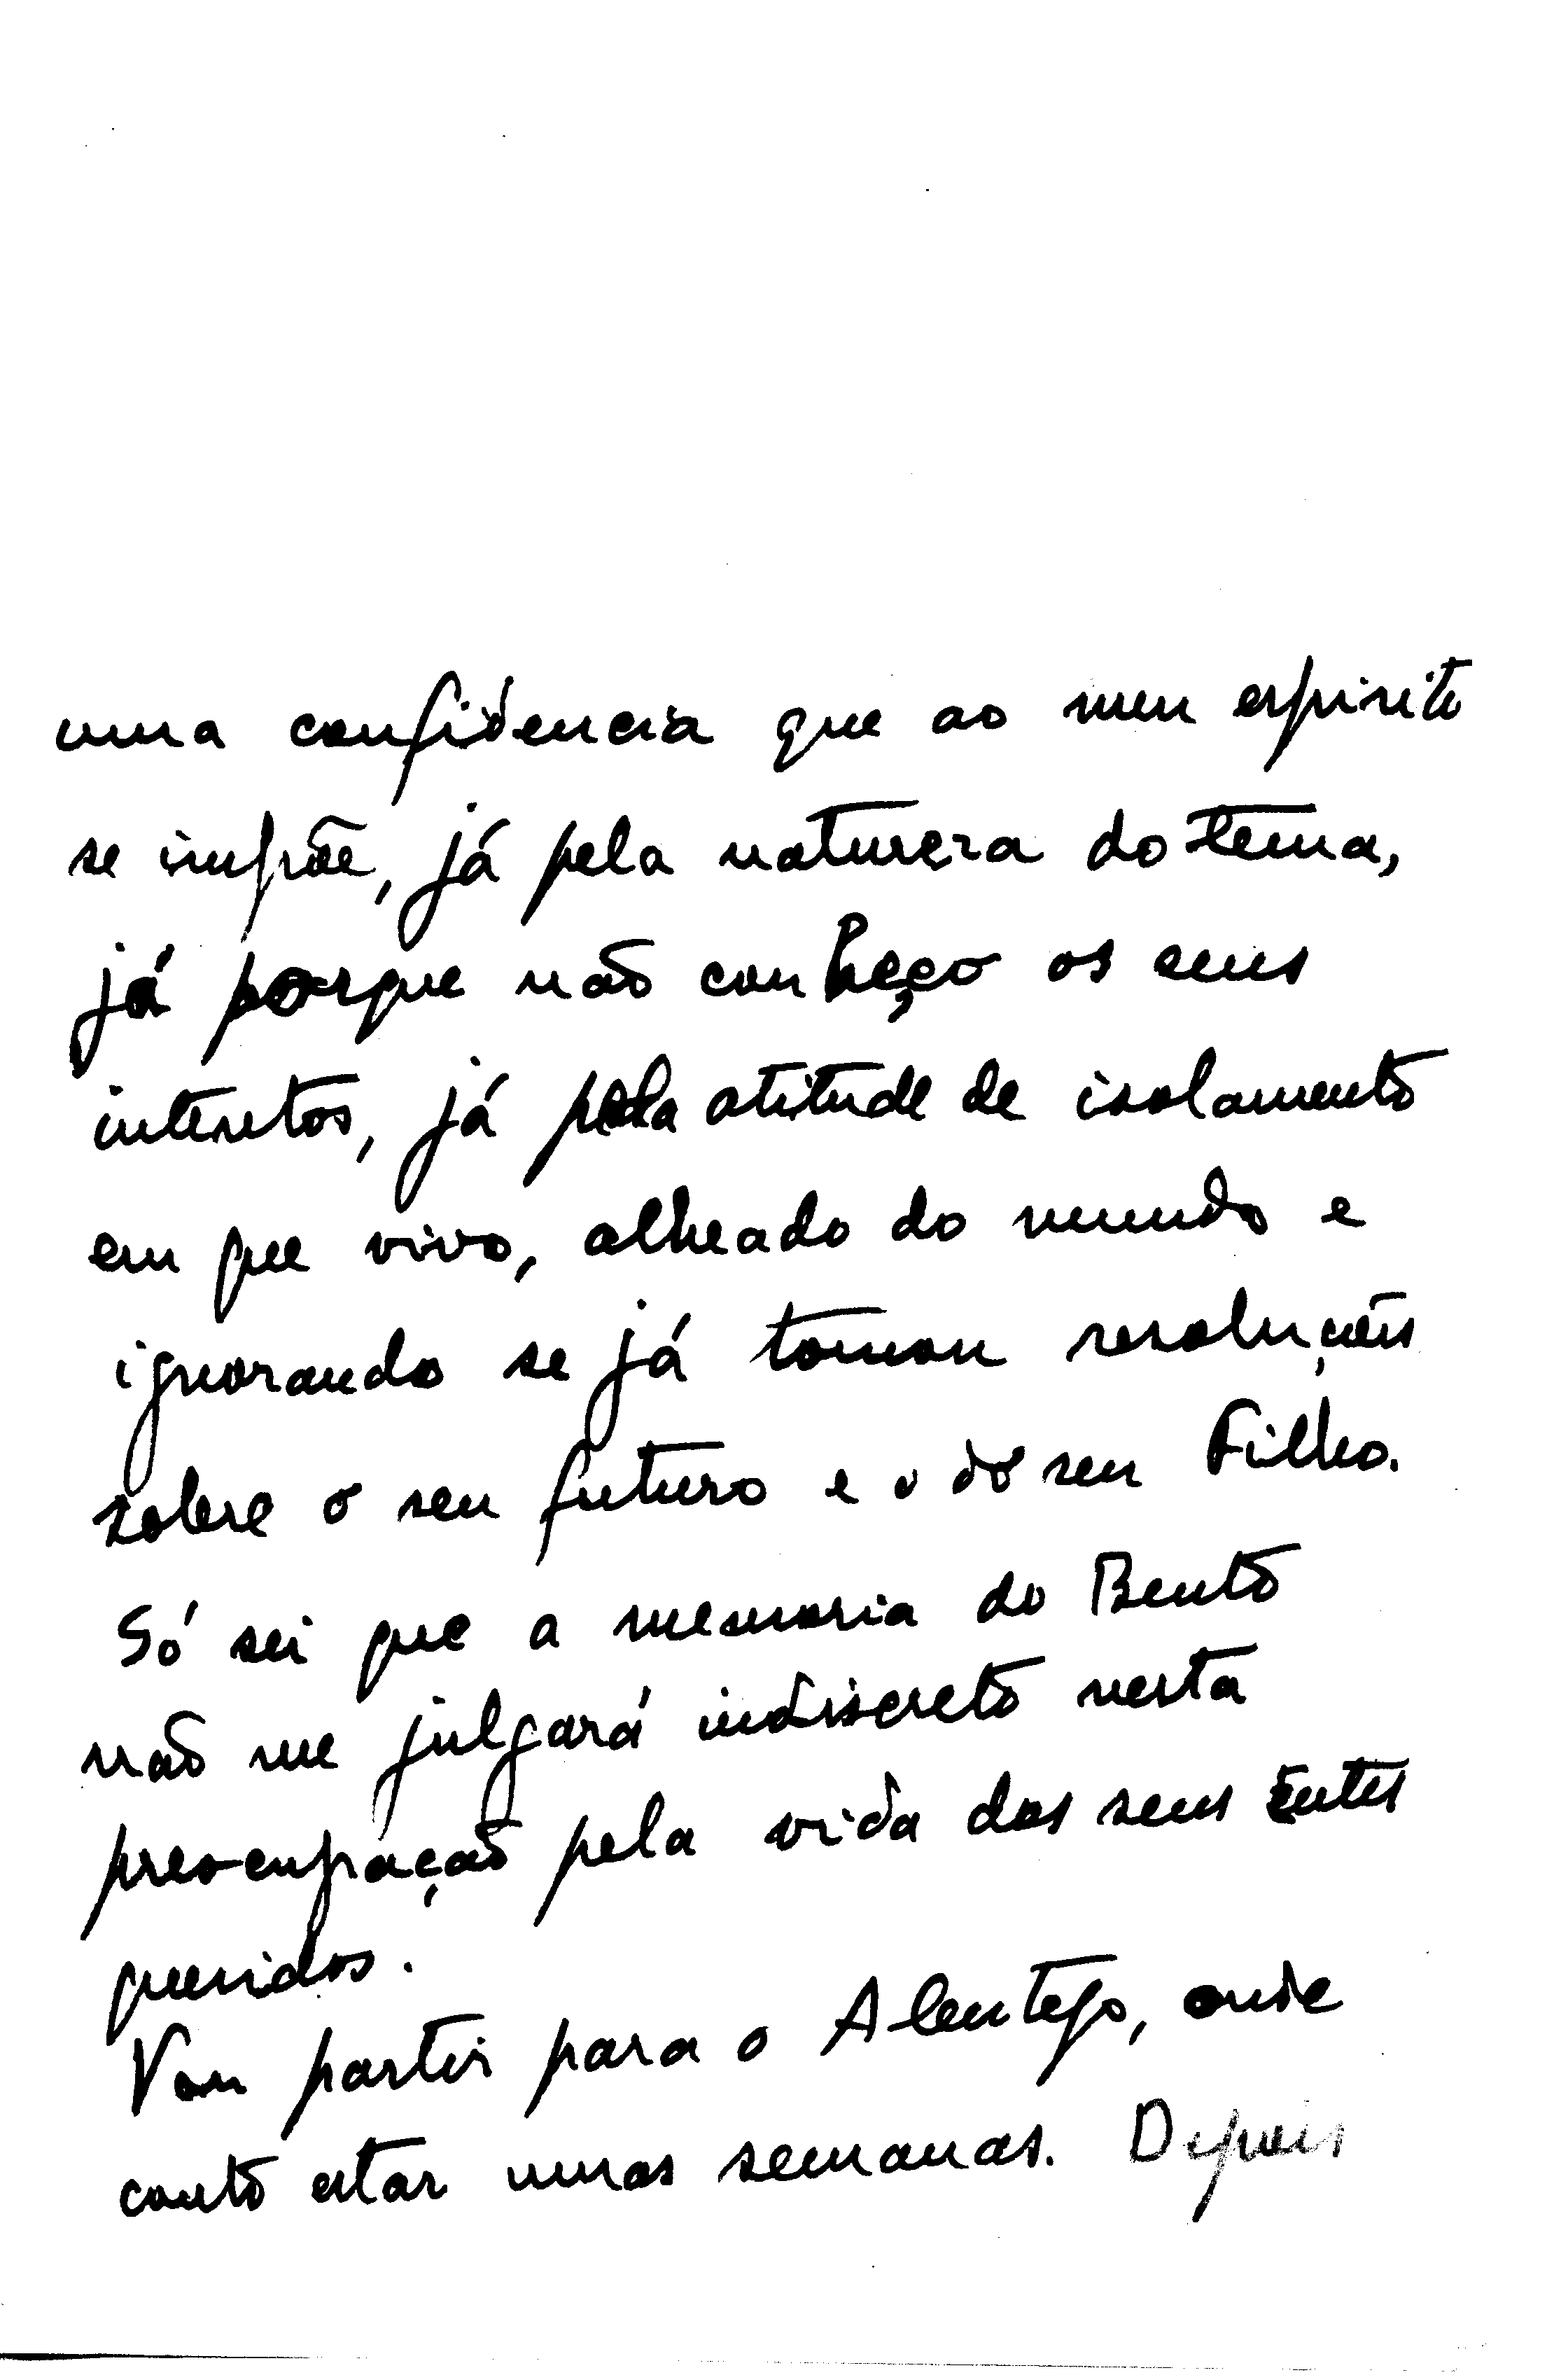 uma confidencia que ao meu espirito
se impõe, já pela natureza do tema,
já porque não conheço os seus
intentos, já pela atitude de isolamento
em que vivo, alheado do mundo e
ignorando se já tomou resoluções
sobre o seu futuro e o do seu Filho.
Só sei que a memoria do Bento
não me julgará indiscreto nesta
preocupação pela vida dos seus Entes
queridos.
Vou partir para o Alentejo, onde
conto estar umas semanas. Depois